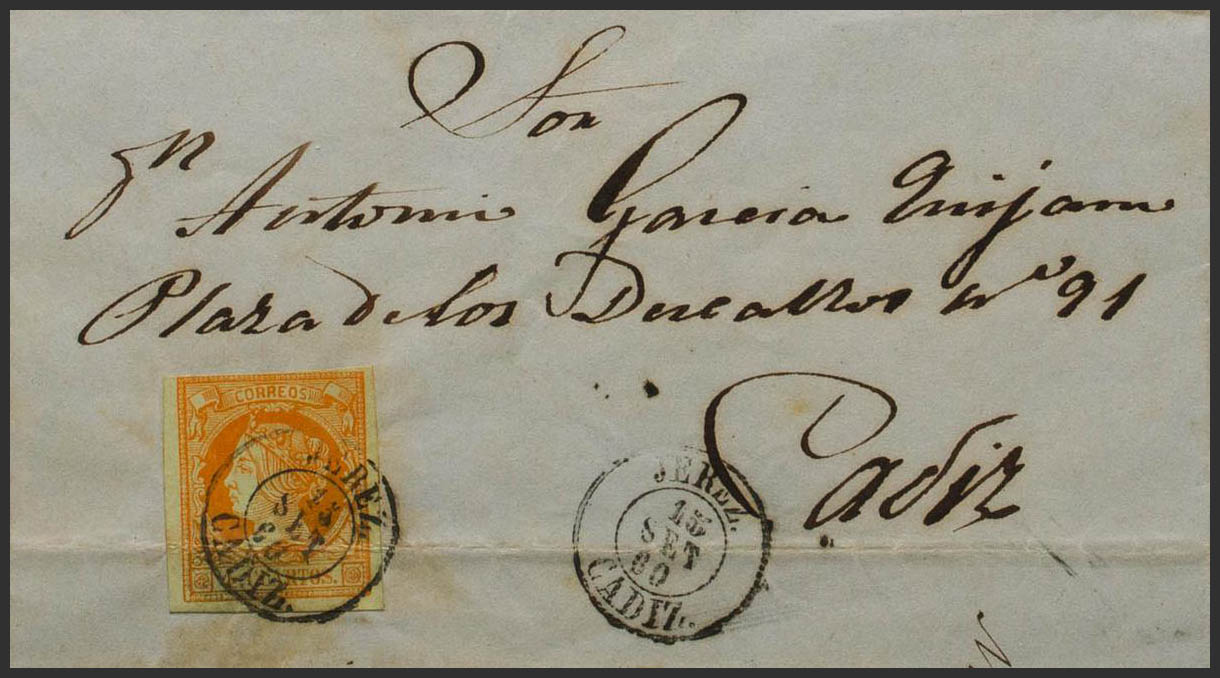 Sor
Dn Antonio Garcia Quijano
Plaza de los Descalzos nº 91
Cadiz
CORREOS
CUARTOS.
JEREZ.
15
SET
60
CADIZ.
JEREZ.
15
SET
60
CADIZ.